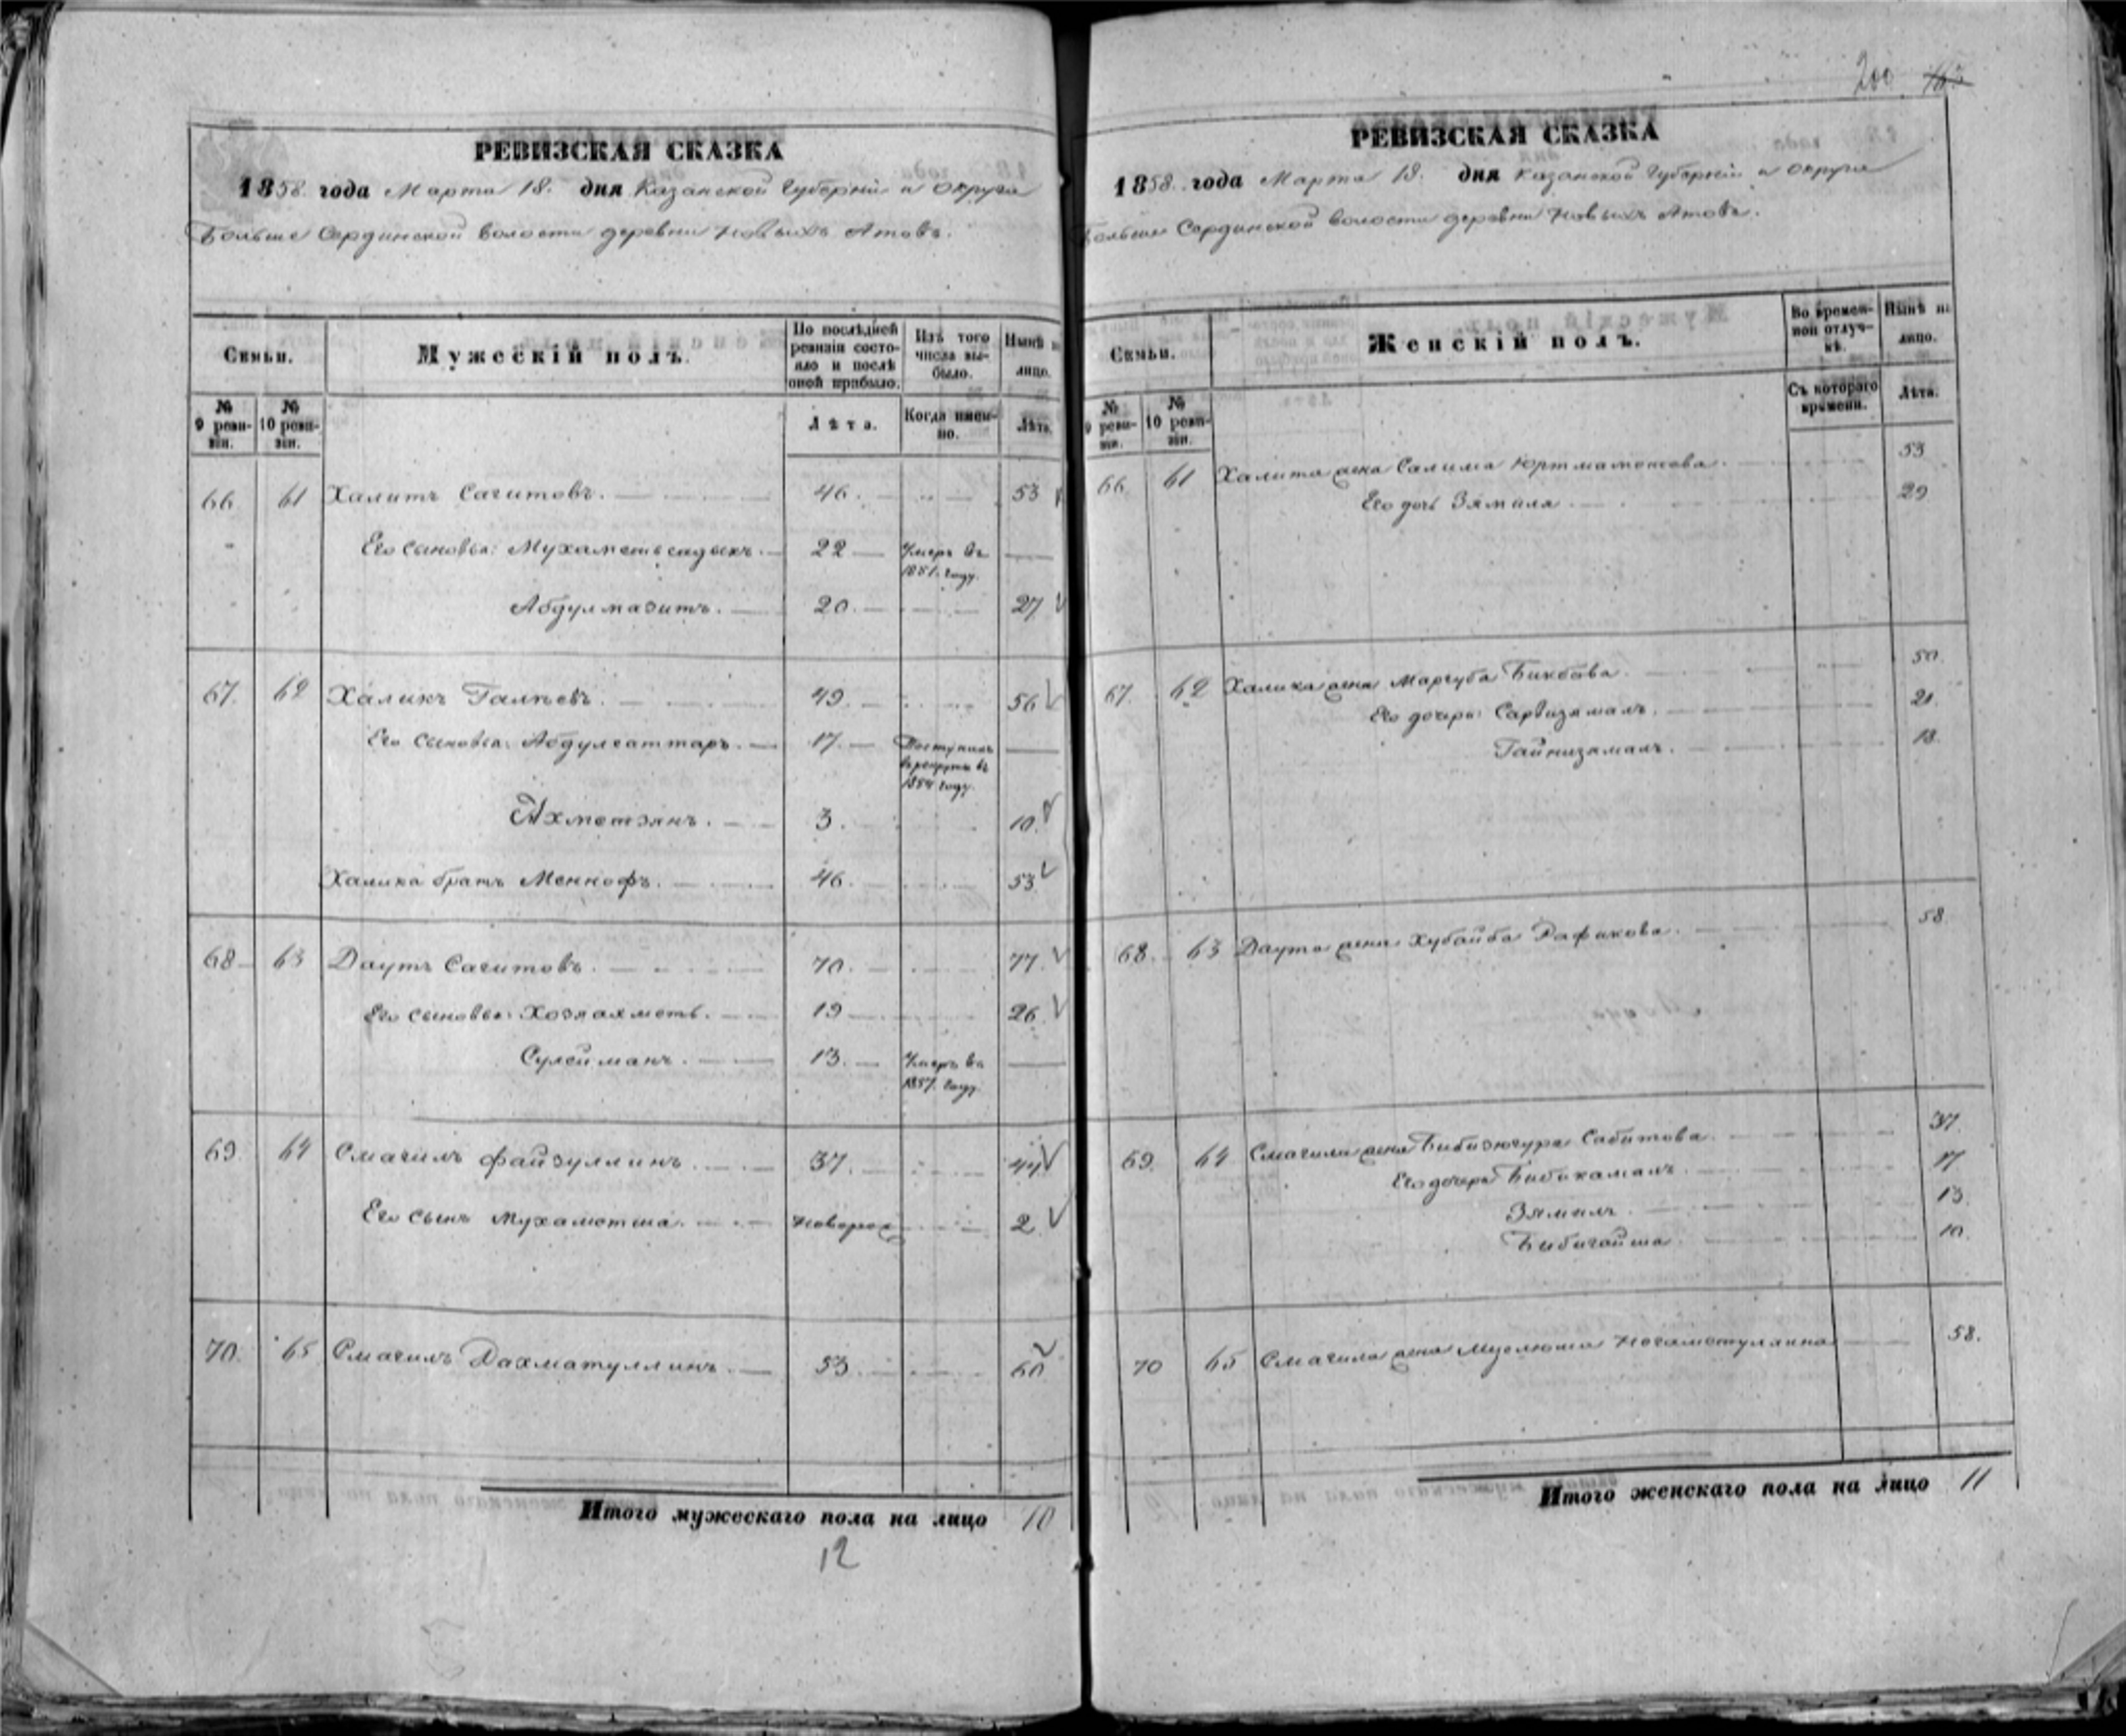 РЕВИЗСКАЯ СКАЗКА
1858. года Марта 18. дня Казанской Губернiи и округа
Больше Сердинской волости деревни Новыхъ Атовъ.
Семьи.
Мужескiй полъ.
По послѣдней ревизiи состояло и послѣ оной прибыло.
Изъ того числа выбыло.
Нынѣ на лицо.
№ 9 ревизiи.
№ 10 ревизiи.
Лѣта.
Когда именно.
Лѣта.
66 61 Халитъ Сагитовъ. 46. 53
Его сыновья: Мухаметьсадыкъ. 22 Умеръ въ 1851. году.
Абдулмазитъ. 20. 27
67. 62 Халикъ Галѣевъ. 49. 56
Его сыновья: Абдулсаттаръ. 17. Поступилъ въ рекруты въ 1854 году.
Ахметзянъ. 3. 10.
Халика братъ Меннофъ. 46. 53.
68 63 Даутъ Сагитовъ. 70. 77.
Его сыновья: Хозяахметь. 19 26.
Сулейманъ. 13. Умеръ въ 1857. году.
69. 64 Смагилъ Файзуллинъ. 37. 44
Его сынъ Мухаметша. Новорож 2.
70. 65 Смагилъ Рахматуллинъ. 53. 60
Итого мужескаго пола на лицо 10
12
200
РЕВИЗСКАЯ СКАЗКА
1858. года Марта 18. дня Казанской Губернiи и округа
Больше Сердинской волости деревни Новыхъ Атовъ.
Семьи.
Женскiй полъ.
Во временной отлучкѣ.
Нынѣ на лицо.
№ 9 ревизiи.
№ 10 ревизiи.
Съ котораго времени.
Лѣта.
66. 61 Халита жена Салима Юртмаметова. 53
Его дочь Зямиля. 29
67. 62 Халика жена Маргуба Бикбова. 50.
Его дочери: Сарвизямалъ. 21.
Гайнизямалъ. 18.
68. 63 Даута жена Хубайба Рафикова. 58.
69. 64 Смагила жена Бибизюгура Сабитова. 37.
Его дочери Бибикамалъ. 17
Зямилъ. 13.
Бибигайша. 10.
70 65 Смагила жена Муслюма Негаметуллина 58.
Итого женскаго пола на лицо 11